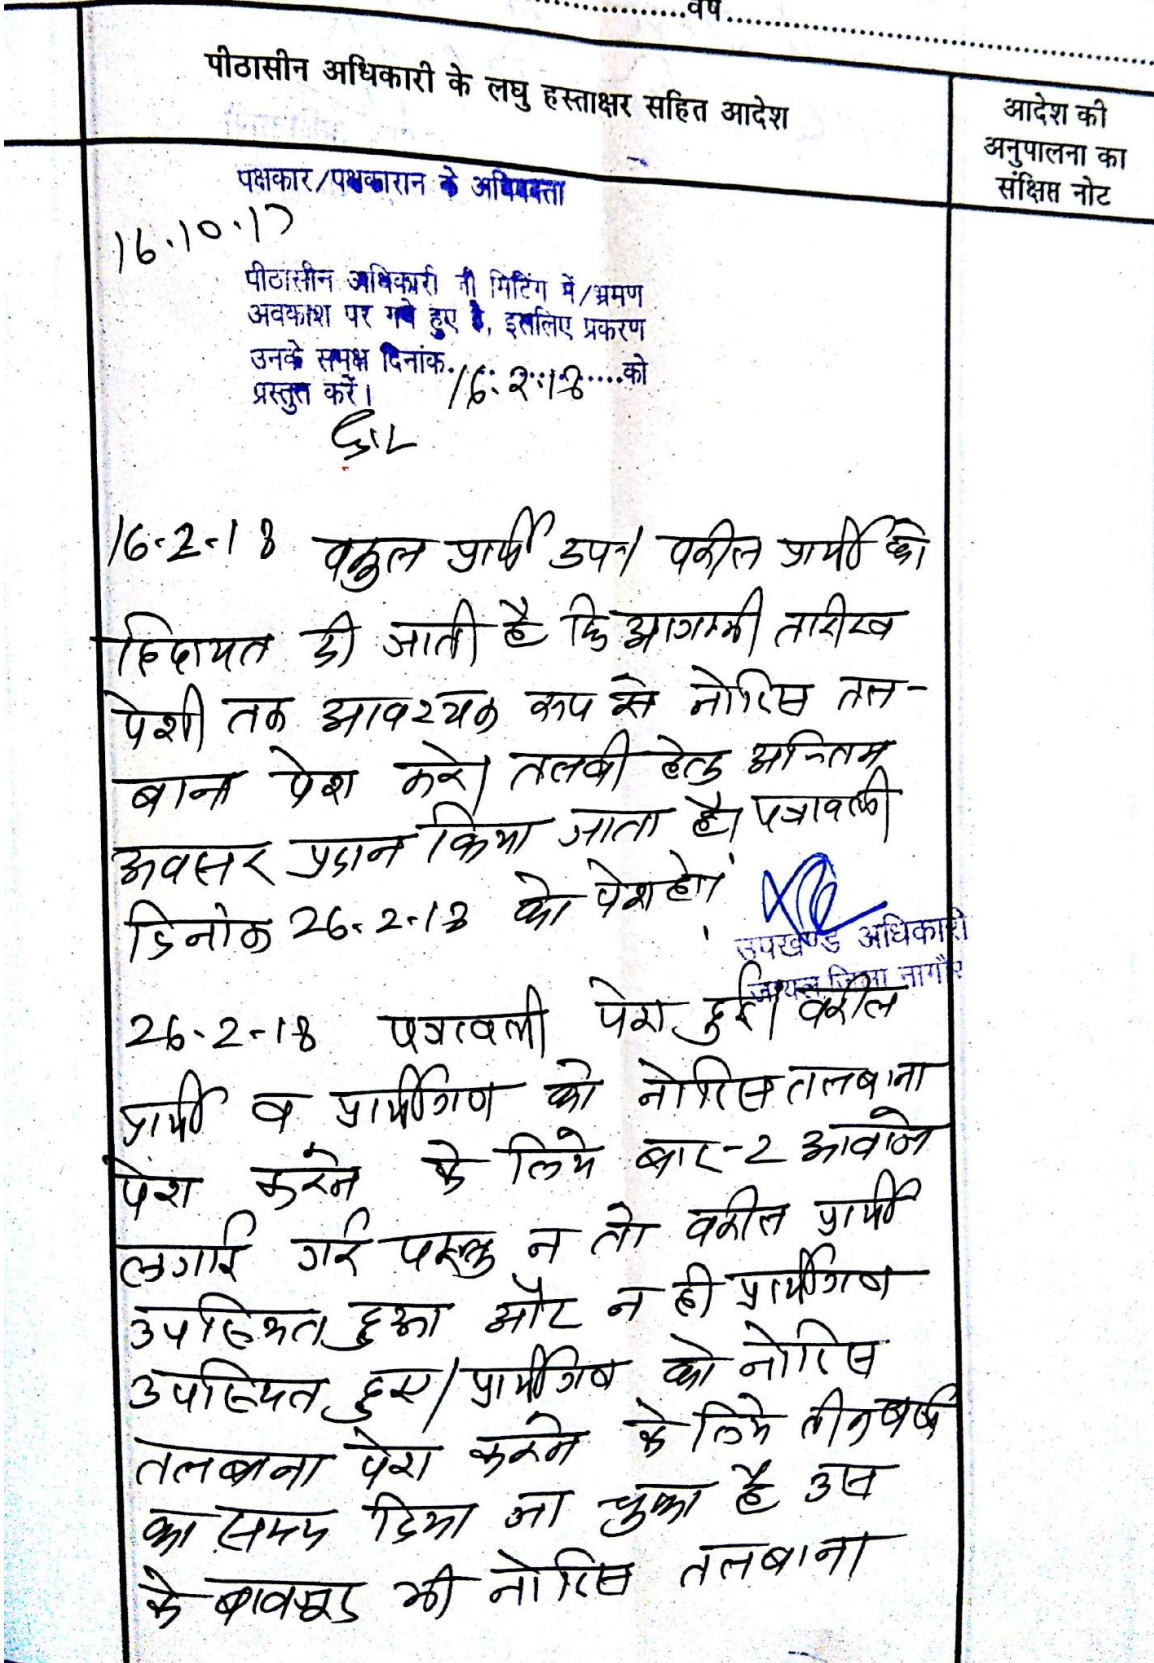 वर्ष
पीठासीन अधिकारी के लघु हस्ताक्षर सहित आदेश
आदेश की
अनुपालना का
संक्षिप्त नोट
पक्षकार/पक्षकारान के अधिवक्ता
16.10.17
पीठासीन अधिकारी जी मिटिंग में/भ्रमण
अवकाश पर गये हुए है, इसलिए प्रकरण
उनके समक्ष दिनांक. 16.2.18 को
प्रस्तुत करें।
16-2-18 वकुल प्रार्थी उप०। वकील प्रार्थी को
हिदायत दी जाती है कि आगामी तारीख
पेशी तक आवश्यक रूप से नोटिस तल-
बाना पेश करे। तलबी हेतु अन्तिम
अवसर प्रदान किया जाता है। पत्रावली
दिनांक 26-2-18 को पेश हो।
उपखण्ड अधिकारी
जायल जिला नागौर
26-2-18 पत्रावली पेश हुई। वकील
प्रार्थी व प्रार्थीगण को नोटिस तलबाना
पेश करने के लिये बार-2 आवाजे
लगाई गई परन्तु न तो वकील प्रार्थी
उपस्थित हुआ और न ही प्रार्थीगण
उपस्थित हुए। प्रार्थीगण को नोटिस
तलबाना पेश करने के लिये तीन वर्ष
का समय दिया जा चुका है उस
के बावजूद भी नोटिस तलबाना